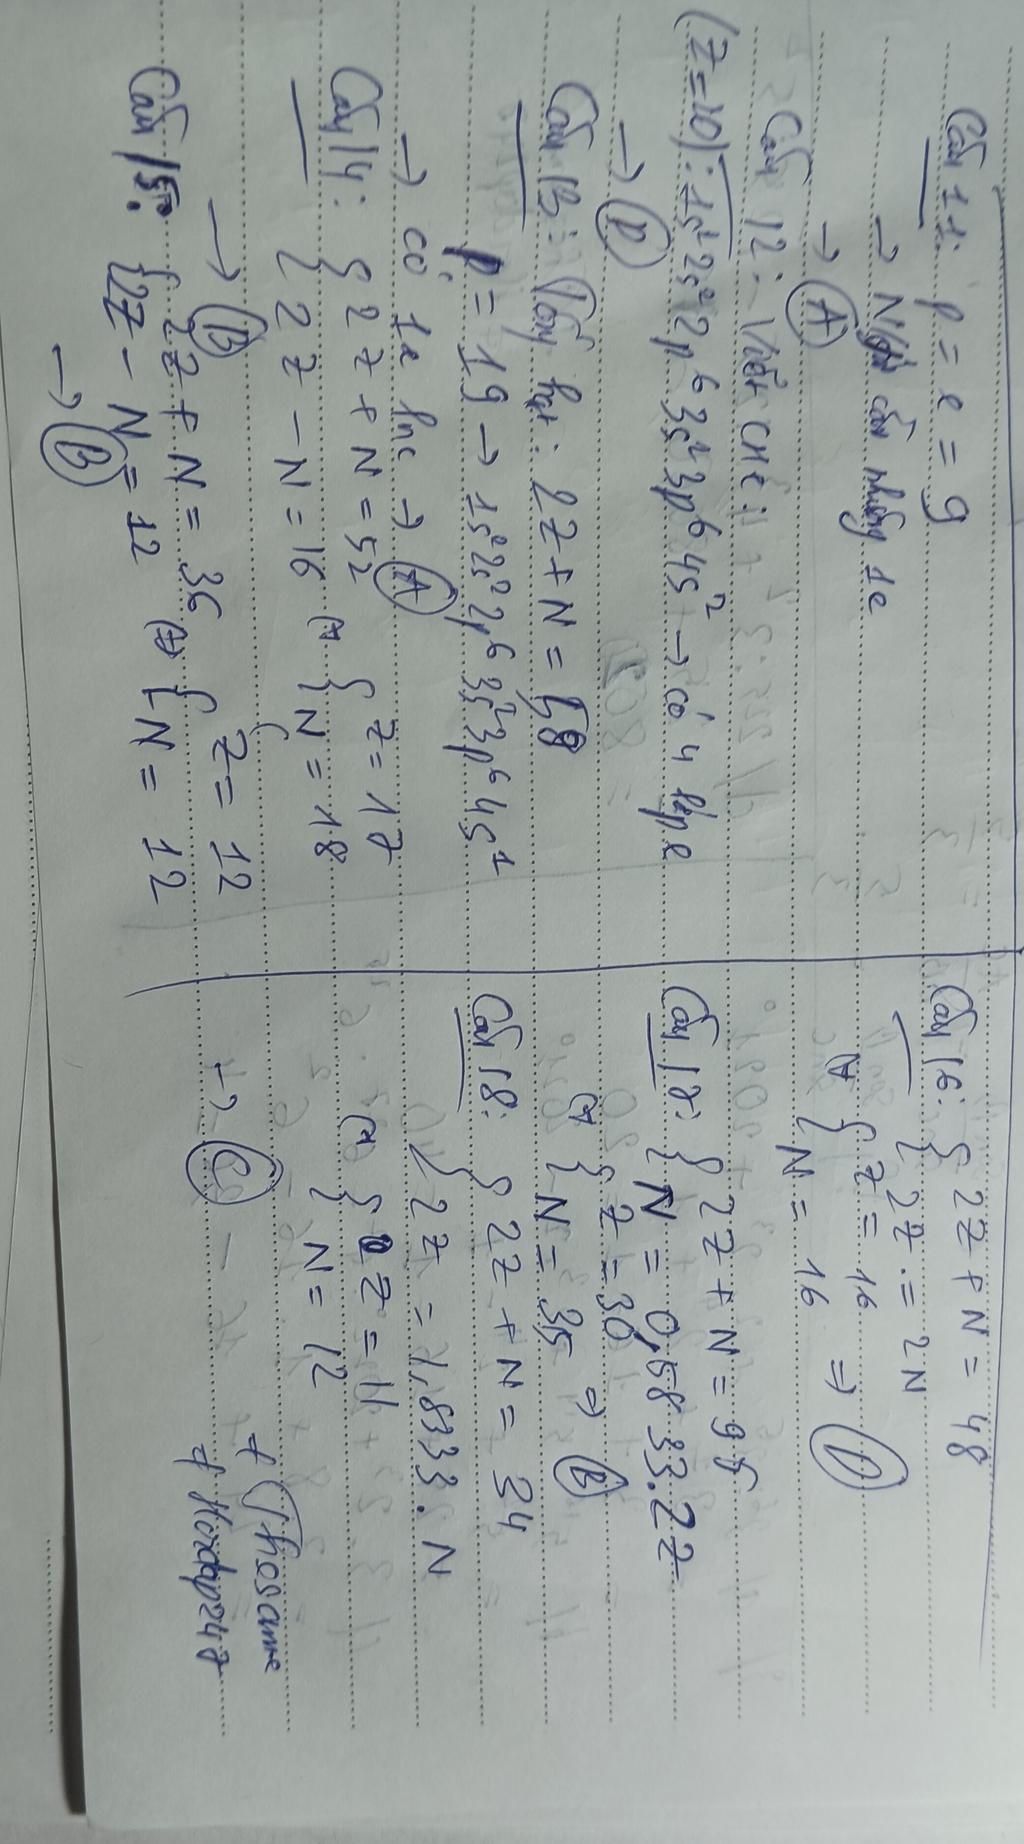 Câu 11: p = e = 9
→ Ngtử cần nhường 1e
→ A
Câu 12: Viết CHe:
(Z=20): 1s² 2s² 2p⁶ 3s² 3p⁶ 4s² → có 4 lớp e
→ D
Câu 13: Tổng hạt: 2Z + N = 58
p = 19 → 1s² 2s² 2p⁶ 3s² 3p⁶ 4s¹
→ có 1e lnc → A
Câu 14: { 2Z + N = 52
{ 2Z - N = 16 (=) { Z = 17
{ N = 18
→ B
Câu 15: { 2Z + N = 36
{ 2Z - N = 12 (=) { Z = 12
{ N = 12
→ B
Câu 16: { 2Z + N = 48
{ 2Z = 2N
{ Z = 16
{ N = 16 ⇒ D
Câu 17: { 2Z + N = 95
{ N = 0,5833.2Z
(=) { Z = 30
{ N = 35 ⇒ B
Câu 18: { 2Z + N = 34
{ 2Z = 1,8333.N
(=) { Z = 11
{ N = 12
→ C
+ Thosanne
+ Hoxdap247